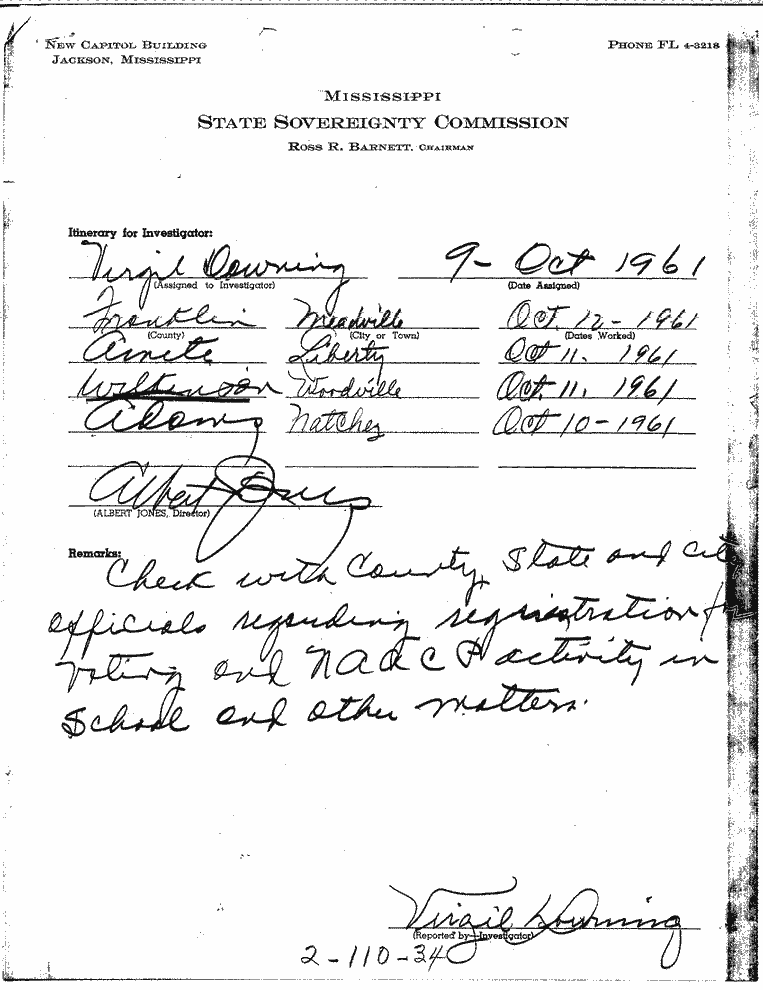 NEW CAPITOL BUILDING
JACKSON, MISSISSIPPI
PHONE FL 4-3218
MISSISSIPPI
STATE SOVEREIGNTY COMMISSION
ROSS R. BARNETT, CHAIRMAN
Itinerary for Investigator:
Virgil Downing 9- Oct 1961
(Assigned to Investigator) (Date Assigned)
Franklin Meadville Oct. 12-1961
(County) (City or Town) (Dates Worked)
Amite Liberty Oct 11. 1961
Wilkinson Woodville Oct. 11. 1961
Adams Natchez Oct 10-1961
Albert Jones
(ALBERT JONES, Director)
Remarks:
Check with County, State and
officials regarding registration for
voting and NAACP activity in
School and other matters.
Virgil Downing
(Reported by-Investigator)
2-110-34